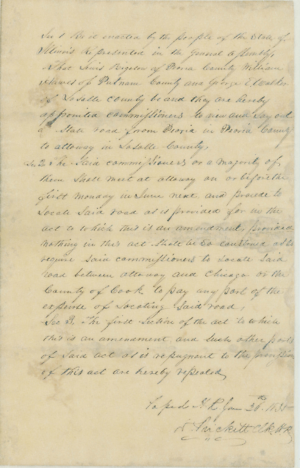 Sec 1 Be it enacted by the people of the State of
Illinois Represented in the general assembly
That Lewis Bigelow of Peoria County William
of Putnam County and George E Walker
of Lasalle County be and they are hereby
appointed commissioners to view and lay out
a State road from Peoria in Peoria County
to attaway in Lasalle County
Sec 2 The Said commissioners or a majority of
them Shall meet at attaway on or before the
first monday in June next and proceed to
Locate Said road as is provided for in the
act to which this is an amendment, provided
nothing in this act Shall be so construed as to
require Said commissioners to Locate Said
road between attaway and Chicago or the
County of Cook to pay any part of the
expense of Locating Said road,
Sec 3. The first Section of the act to which
this is an amendment and Such other parts
of Said act as is repugnant to the provisions
of this act are hereby repealed
H. R. Jany 26th